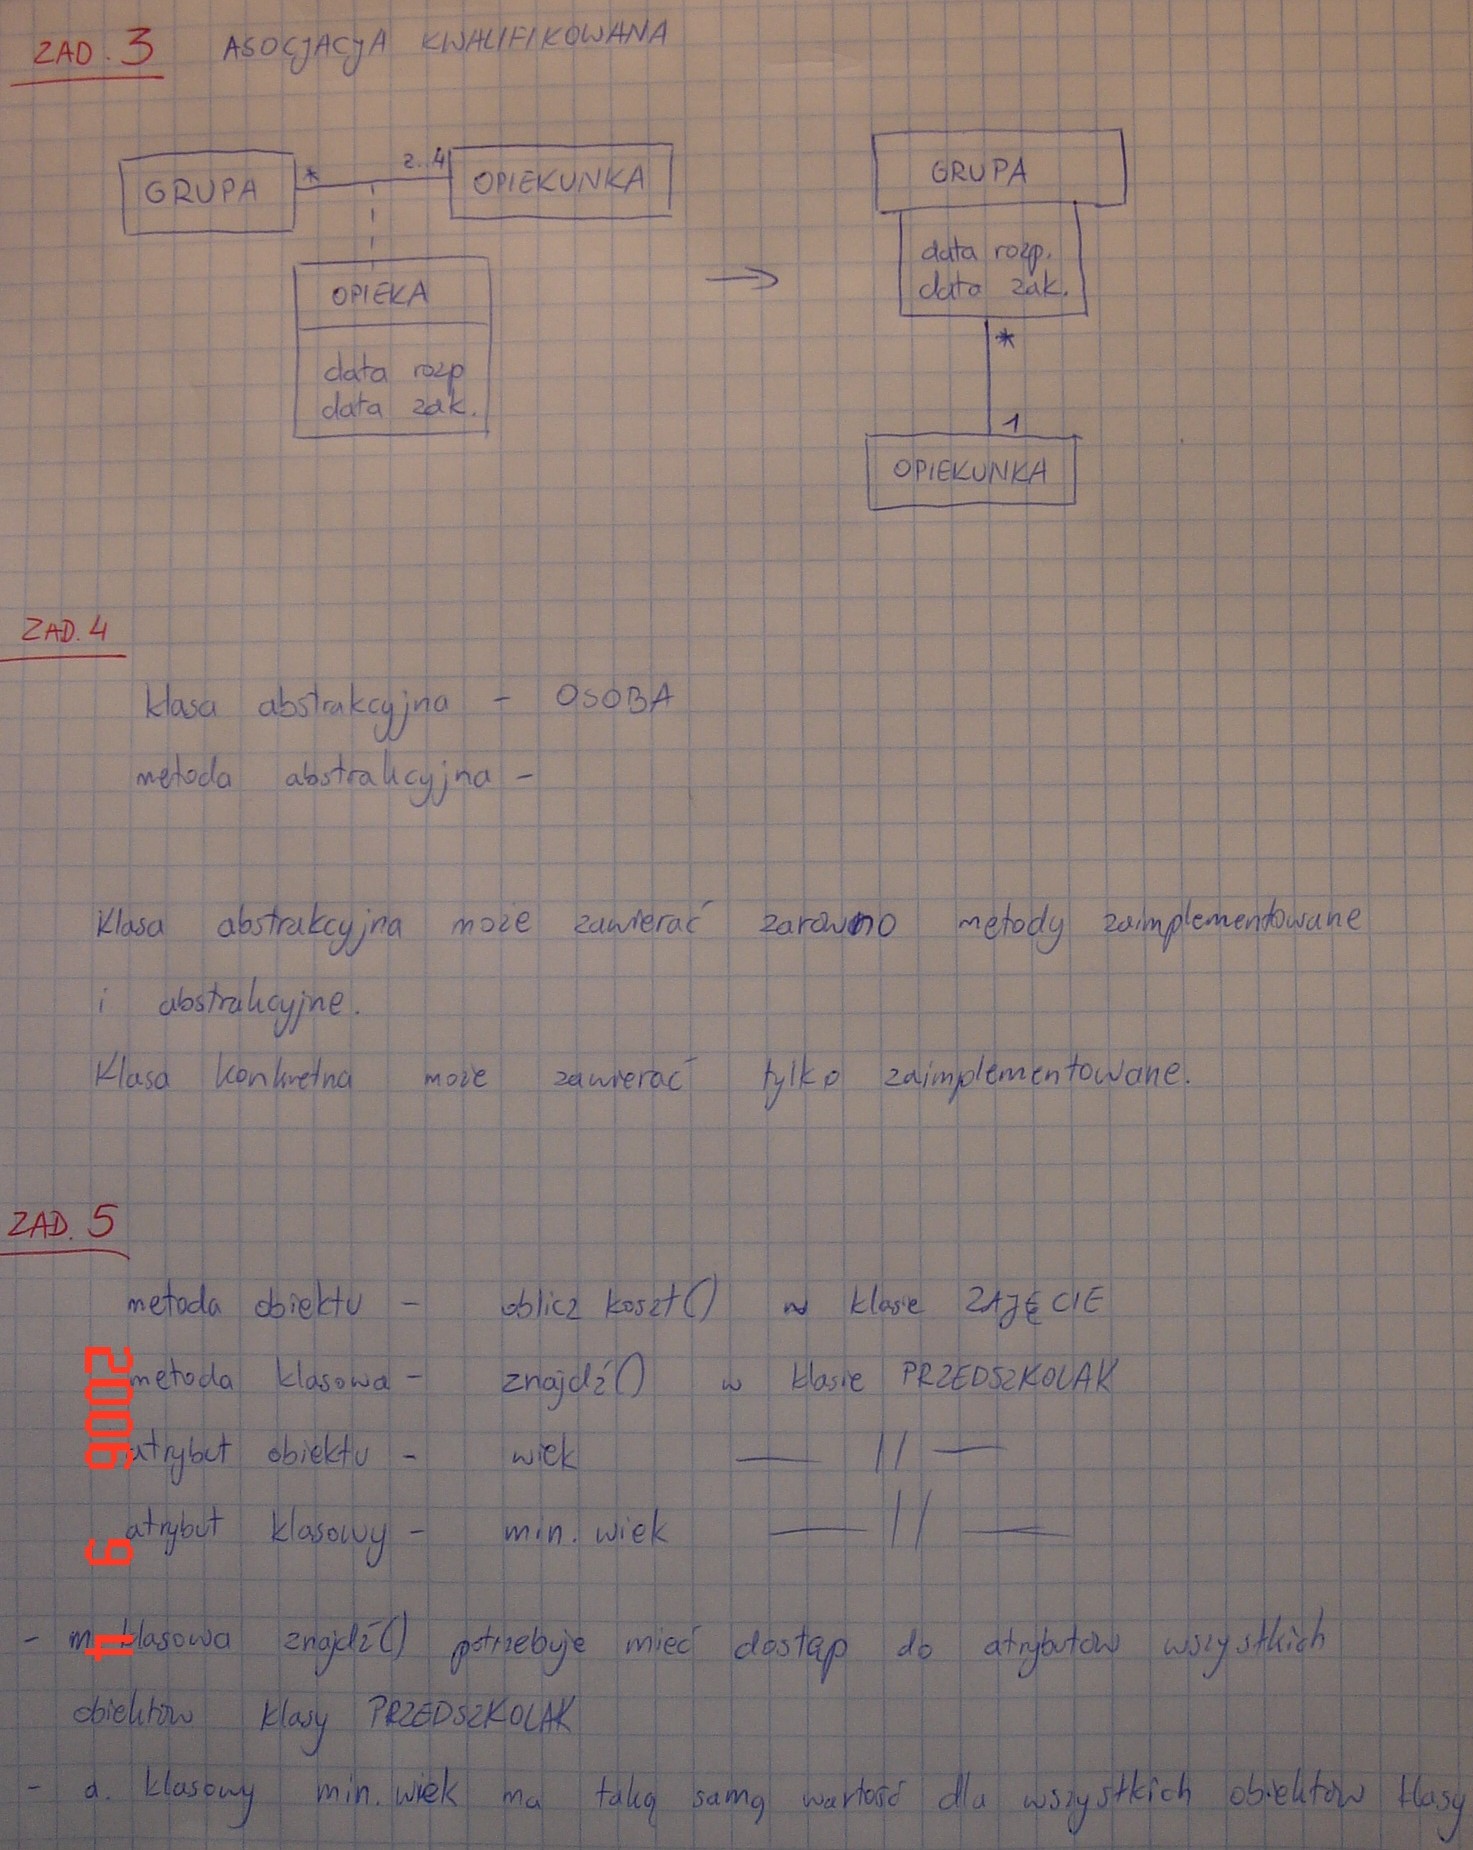 ZAD. 3 ASOCJACJA KWALIFIKOWANA
GRUPA * 2..4 OPIEKUNKA
OPIEKA
data rozp
data zak.
→
GRUPA
data rozp.
data zak.
*
1
OPIEKUNKA
ZAD. 4
klasa abstrakcyjna - OSOBA
metoda abstrakcyjna -
Klasa abstrakcyjna może zawierać zarówno metody zaimplementowane
i abstrakcyjne.
Klasa konkretna może zawierać tylko zaimplementowane.
ZAD. 5
metoda obiektu - oblicz koszt() w klasie ZAJĘCIE
metoda klasowa - znajdź() w klasie PRZEDSZKOLAK
atrybut obiektu - wiek — // —
atrybut klasowy - min. wiek — // —
- m. klasowa znajdź() potrzebuje mieć dostęp do atrybutów wszystkich
obiektów klasy PRZEDSZKOLAK
- a. klasowy min. wiek ma taką samą wartość dla wszystkich obiektów klasy
2006 9 4